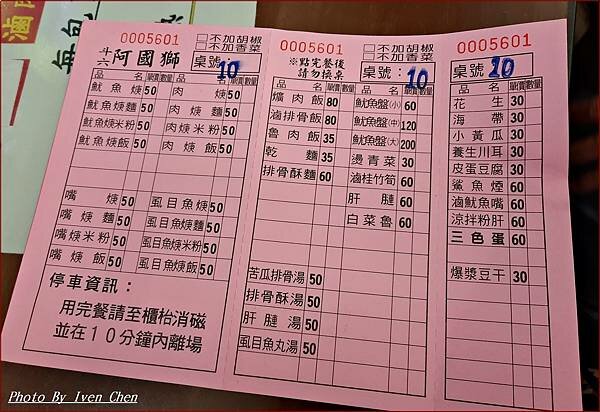 斗六 阿國獅
□不加胡椒
□不加香菜
桌號：10
品名 單價 數量 品名 單價 數量
魷魚焿 50 肉焿 50
魷魚焿麵 50 肉焿麵 50
魷魚焿米粉 50 肉焿米粉 50
魷魚焿飯 50 肉焿飯 50
嘴焿 50 虱目魚焿 50
嘴焿麵 50 虱目魚焿麵 50
嘴焿米粉 50 虱目魚焿米粉 50
嘴焿飯 50 虱目魚焿飯 50
停車資訊：
用完餐請至櫃枱消磁
並在10分鐘內離場
0005601
□不加胡椒
□不加香菜
※點完餐後
請勿換桌
桌號：10
品名 單價 數量 品名 單價 數量
爌肉飯 80 魷魚盤(小) 60
滷排骨飯 80 魷魚盤(中) 120
魯肉飯 35 魷魚盤(大) 200
乾麵 35 燙青菜 30
排骨酥麵 60 滷桂竹筍 60
肝腱 60
白菜魯 60
苦瓜排骨湯 50
排骨酥湯 50
肝腱湯 50
虱目魚丸湯 50
0005601
桌號：20
品名 單價 數量
花生 30
海帶 30
小黃瓜 30
養生川耳 30
皮蛋豆腐 30
鯊魚煙 60
滷魷魚嘴 60
涼拌粉肝 60
三色蛋 60
爆漿豆干 30
Photo By Iven Chen